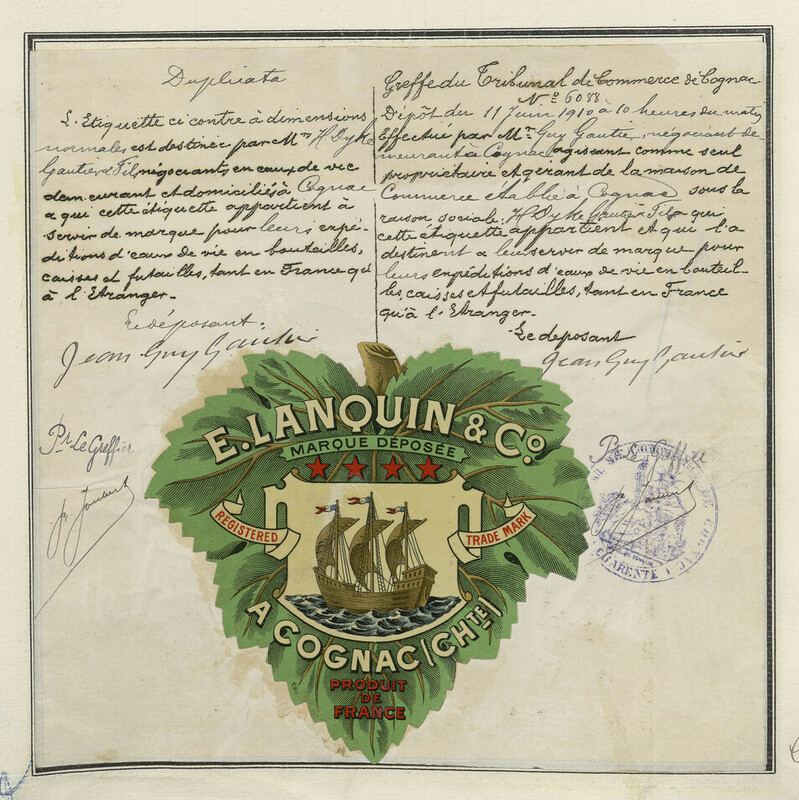 Duplicata
L'Etiquette ci contre à dimensions
normales est destinée par Mrs H Dyke
Gautier & Fils négociants en eaux de vie
demeurant et domiciliés à Cognac
a qui cette étiquette appartient à
servir de marque pour leurs expé-
ditions d'eaux de vie en bouteilles,
caisses et futailles, tant en France qu'
à l'Etranger.-
Le déposant:
Jean Guy Gautier
Pr Le Greffier
Greffe du Tribunal de Commerce de Cognac
N° 6088
Dépôt du 11 Juin 1910 à 10 heures du matin
Effectué par Mr Guy Gautier, négociant de-
meurant à Cognac agissant comme seul
propriétaire et gérant de la maison de
Commerce établie à Cognac sous la
raison sociale: H Dyke Gautier & Fils qui
cette étiquette appartient et qui l'a
destinent a leur servir de marque pour
leurs expéditions d'eaux de vie en bouteil-
les, caisses et futailles, tant en France
qu'à l'Etranger.-
Le deposant
Jean Guy Gautier
Pr Le Greffier
CHARENTE
E. LANQUIN & Co.
MARQUE DÉPOSÉE
REGISTERED
TRADE MARK
A COGNAC (CHTE)
PRODUIT
DE
FRANCE